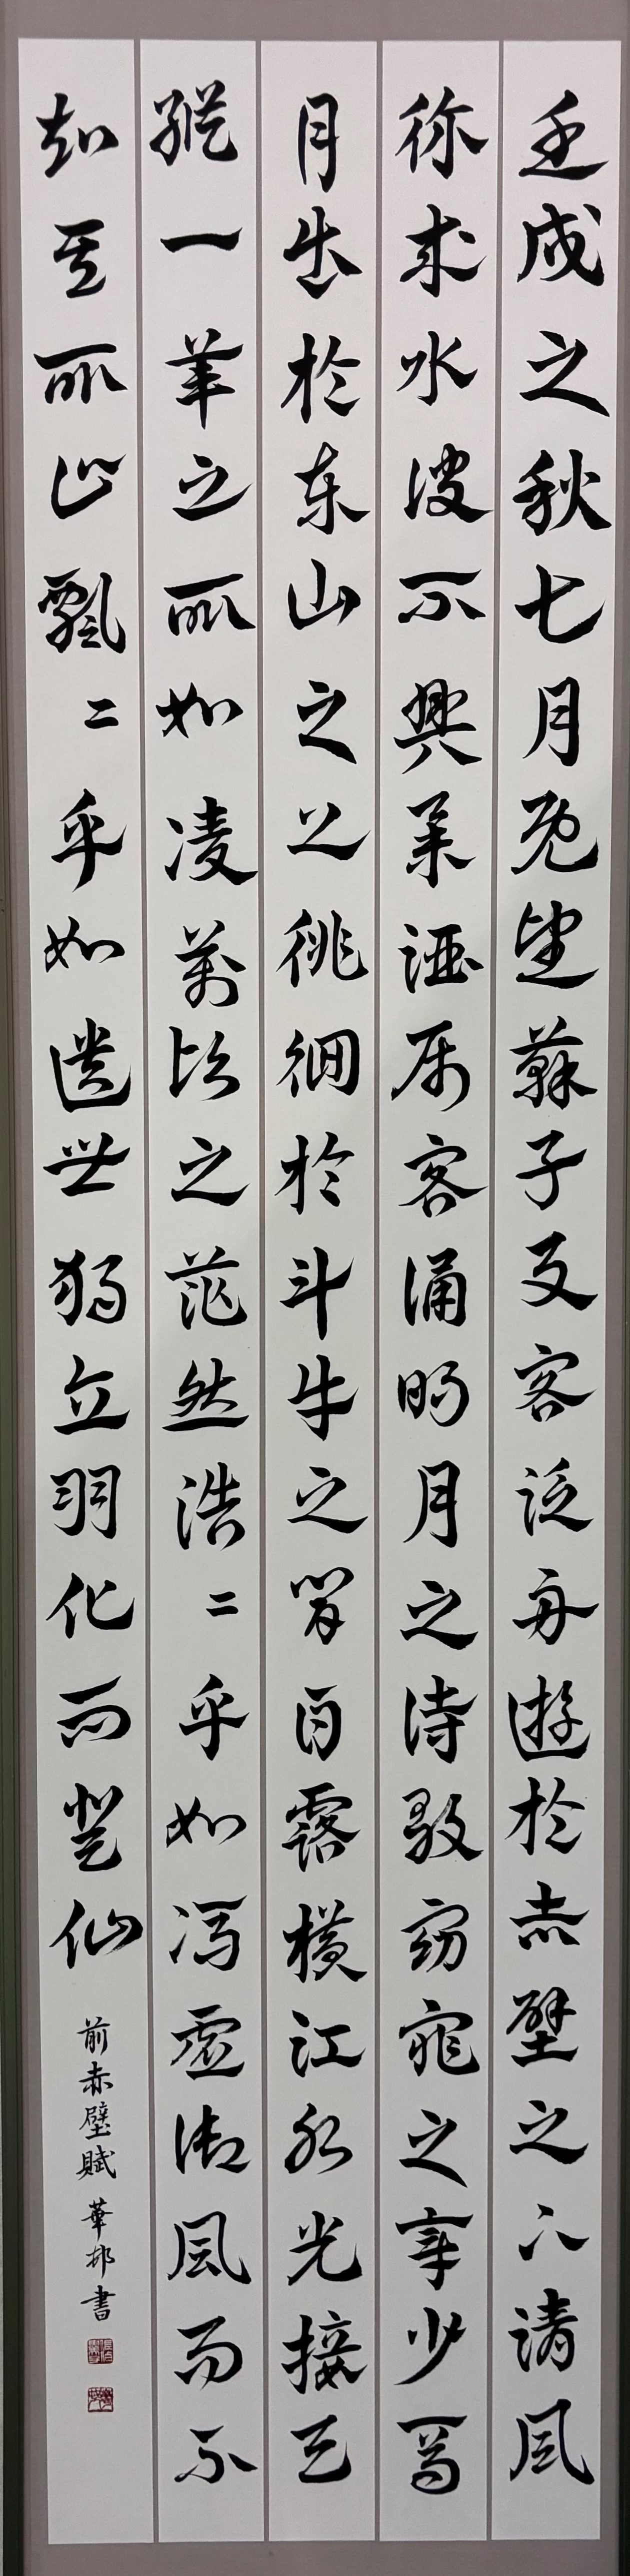 壬戌之秋七月既望蘇子与客泛舟遊於赤壁之下清風
徐來水波不興舉酒属客誦明月之詩歌窈窕之章少焉
月出於东山之上徘徊於斗牛之間白露横江水光接天
縱一葦之所如凌萬頃之茫然浩〻乎如馮虛御風而不
知其所止飄〻乎如遺世獨立羽化而登仙
前赤壁賦 華邨書